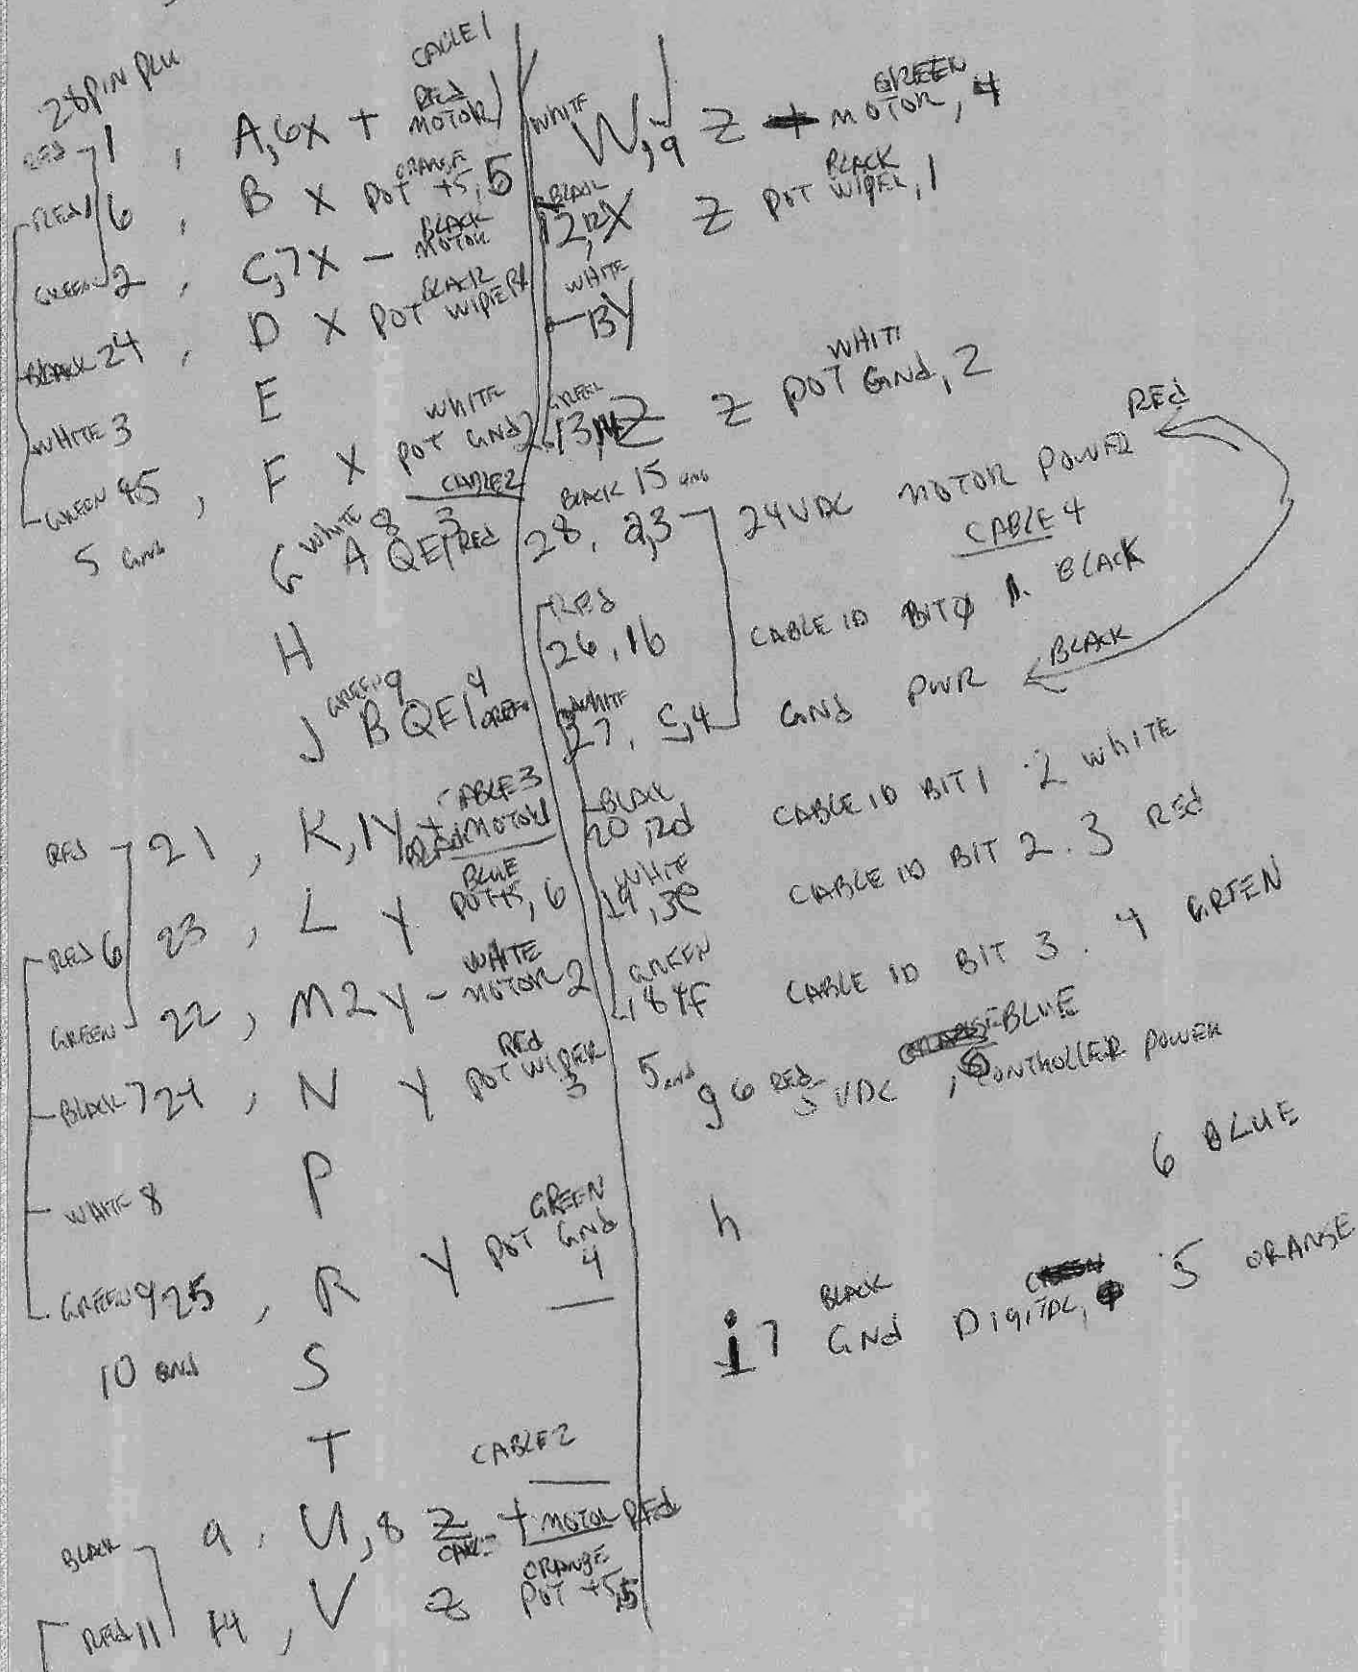 28 PIN PLU
CABLE 1
RED 1, A,6X + RED MOTOR 1
RED 1 6, B X POT ORANGE +5, 5
GREEN 2, C,7X - BLACK MOTOR
BLACK 24, D X POT BLACK WIPER
WHITE 3 E
GREEN 4 5, F X POT WHITE GND 2
5 GND CABLE 2
G WHITE 8 A QE1 3 RED
H
J GREEN 9 B QE1 4 GREEN
CABLE 3
RED 21, K,1Y + MOTOR 1
RED 6 23, L Y BLUE POT +5, 6
GREEN 22, M2Y - WHITE MOTOR 2
BLACK 7 24, N Y POT RED WIPER 3
WHITE 8 P
GREEN 9 25, R Y POT GREEN GND 4
10 GND S
T CABLE 2
BLACK 9, U,8 Z + MOTOR RED
RED 11 14, V Z ORANGE POT +5,5
WHITE W,9 Z MOTOR, 4 GREEN
BLACK 12,12X Z POT BLACK WIPER, 1
WHITE BY
GREEN 26,13,14Z Z POT WHIT GND, 2
BLACK 15 GND
28, a,3 24 VDC MOTOR POWER RED
CABLE 4
RED 26, 1b CABLE ID BIT 0 1. BLACK
WHITE 27, C,4 GND PWR BLACK
BLACK 20, 2d CABLE ID BIT 1 .2 WHITE
WHITE 19, 3e CABLE ID BIT 2 . 3 RED
GREEN 18 4F CABLE ID BIT 3 . 4 GREEN
5 GND g 6 RED 5 VDC, BLUE CONTROLLER POWER
6 BLUE
h
i 7 BLACK GND DIGITAL, 5 ORANGE